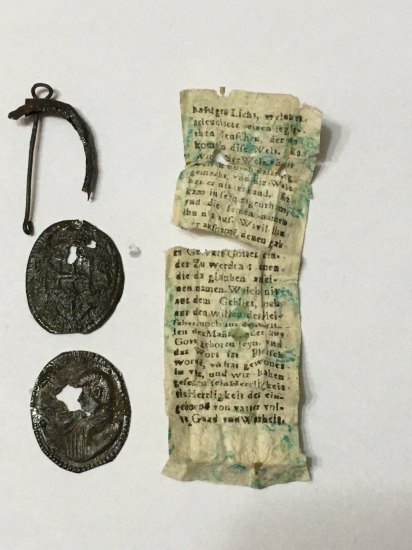 haftiges Licht, welches
erleuchtet einen jegli-
chen Menschen, der da
kom in dise Welt. Es
war in der Welt, und die
Welt
gemacht, und die Welt
hat es nit erkandt. Er
kam in sein eigenthum,
und die seinen namen
ihn nit auf. Wivil ihn
er aufgnomē, denen gab
er Gewalt Gottes Kin-
der Zu werden, denen
die da glauben an sei-
nen namen. Welch nit
aus dem Geblüet, noch
aus den willen des flei-
sches, noch aus dem wil-
len des Mañs, sonder aus
Gott geboren seyn. Und
das Wort ist Fleisch
worde, vñ hat gewonet
in vns, und wir haben
gesehen sein Herrligkeit
als Herrligkeit des ein-
gebornē von vatter vol-
le Gnad und Warheit.